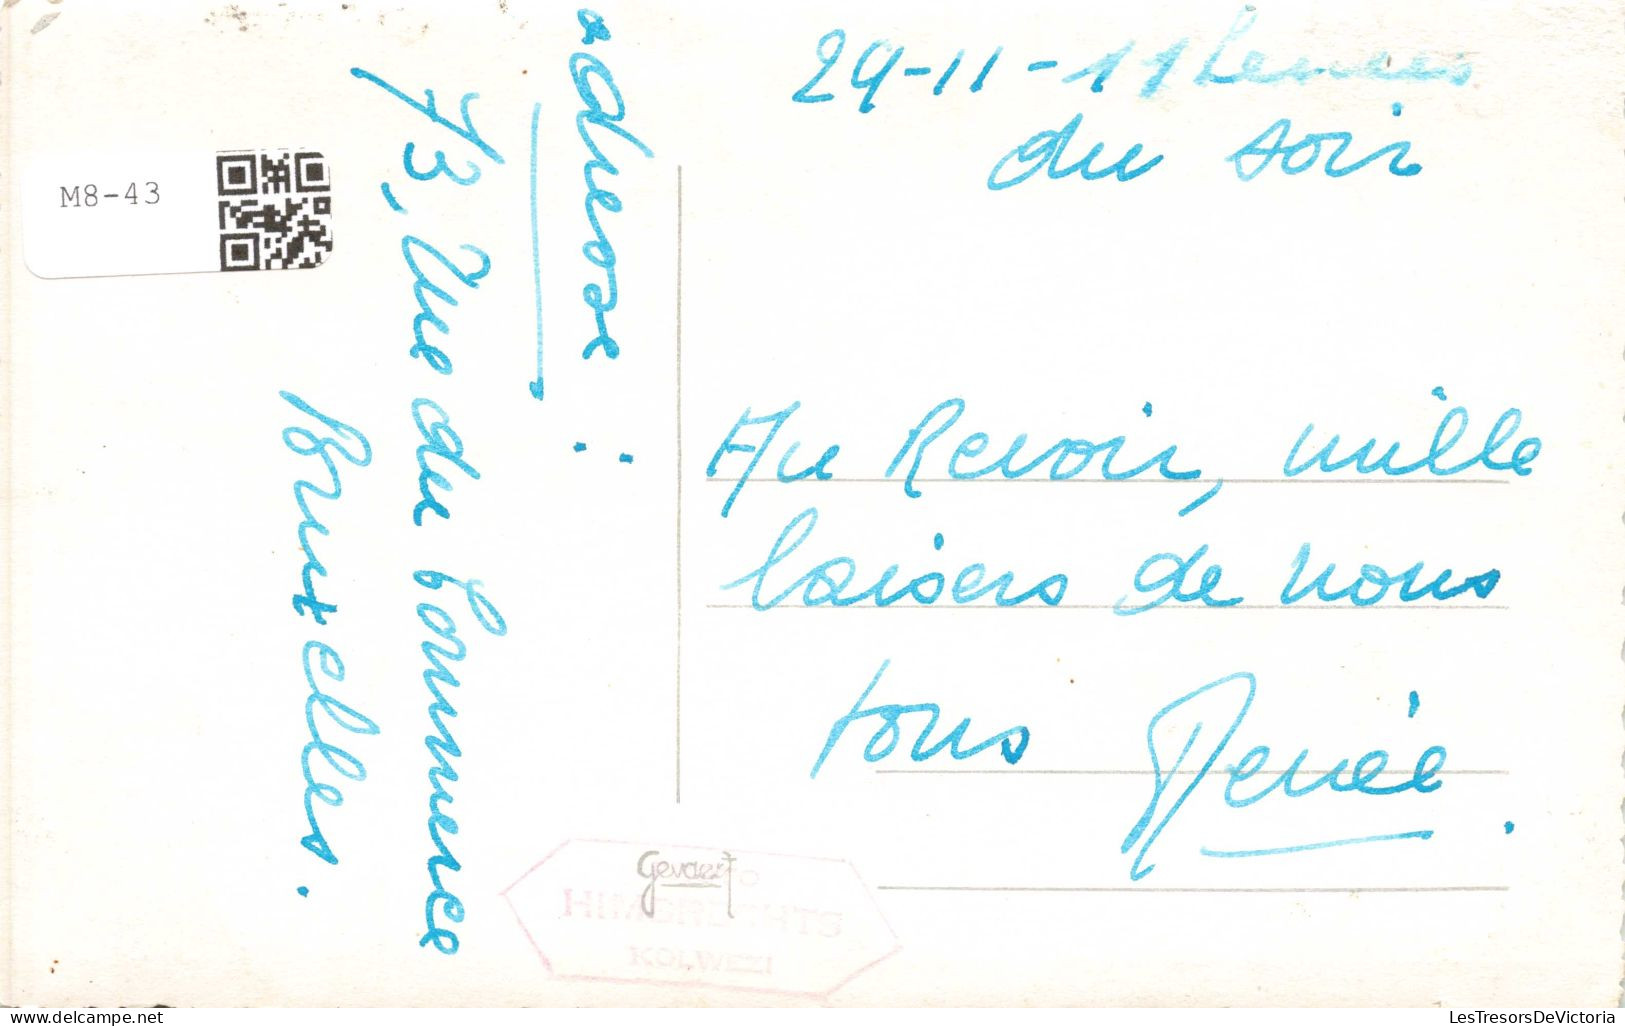 29-11-11 heures
du soir
Au Revoir, mille
baisers de nous
tous Renée.
adresse :
73, Rue du Tonnerre
Bruxelles.
M8-43
Gevaert
HIMBRECHTS
KOLWEZI
delcampe.net
LesTresorsDeVictoria